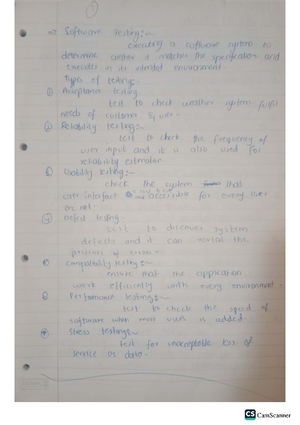 1
=> Software Testing:-
executing a software system to
determine wether it matches the specification and
executes in its intended environment
types of testing
① Acceptance testing
test to check weather system fulfil
needs of customer
② Reliability testing:-
test to check the frequency of
user input and it is also used for
reliability estimation
③ Usability testing:-
check the system that
user interface accessible for every user
or not.
④ Defect testing
test to discover system
defects and it can reveal the
presence of errors.
⑤ Compatibility testing:-
ensure that the application
work efficiently with every environment.
⑥ Performance testing:-
test to check the speed of
software when more users is added
⑦ Stress testing:-
test for unacceptable loss of
service or data.
CS CamScanner